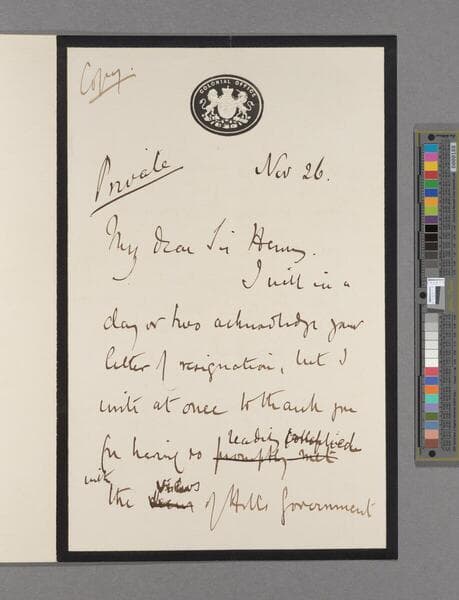 Copy.
COLONIAL OFFICE
Private
Nov 26.
My dear Sir Henry.
I will in a
day or two acknowledge your
letter of resignation, but I
write at once to thank you
readily complied
for having so promptly met
with views
the of H.M.'s Government